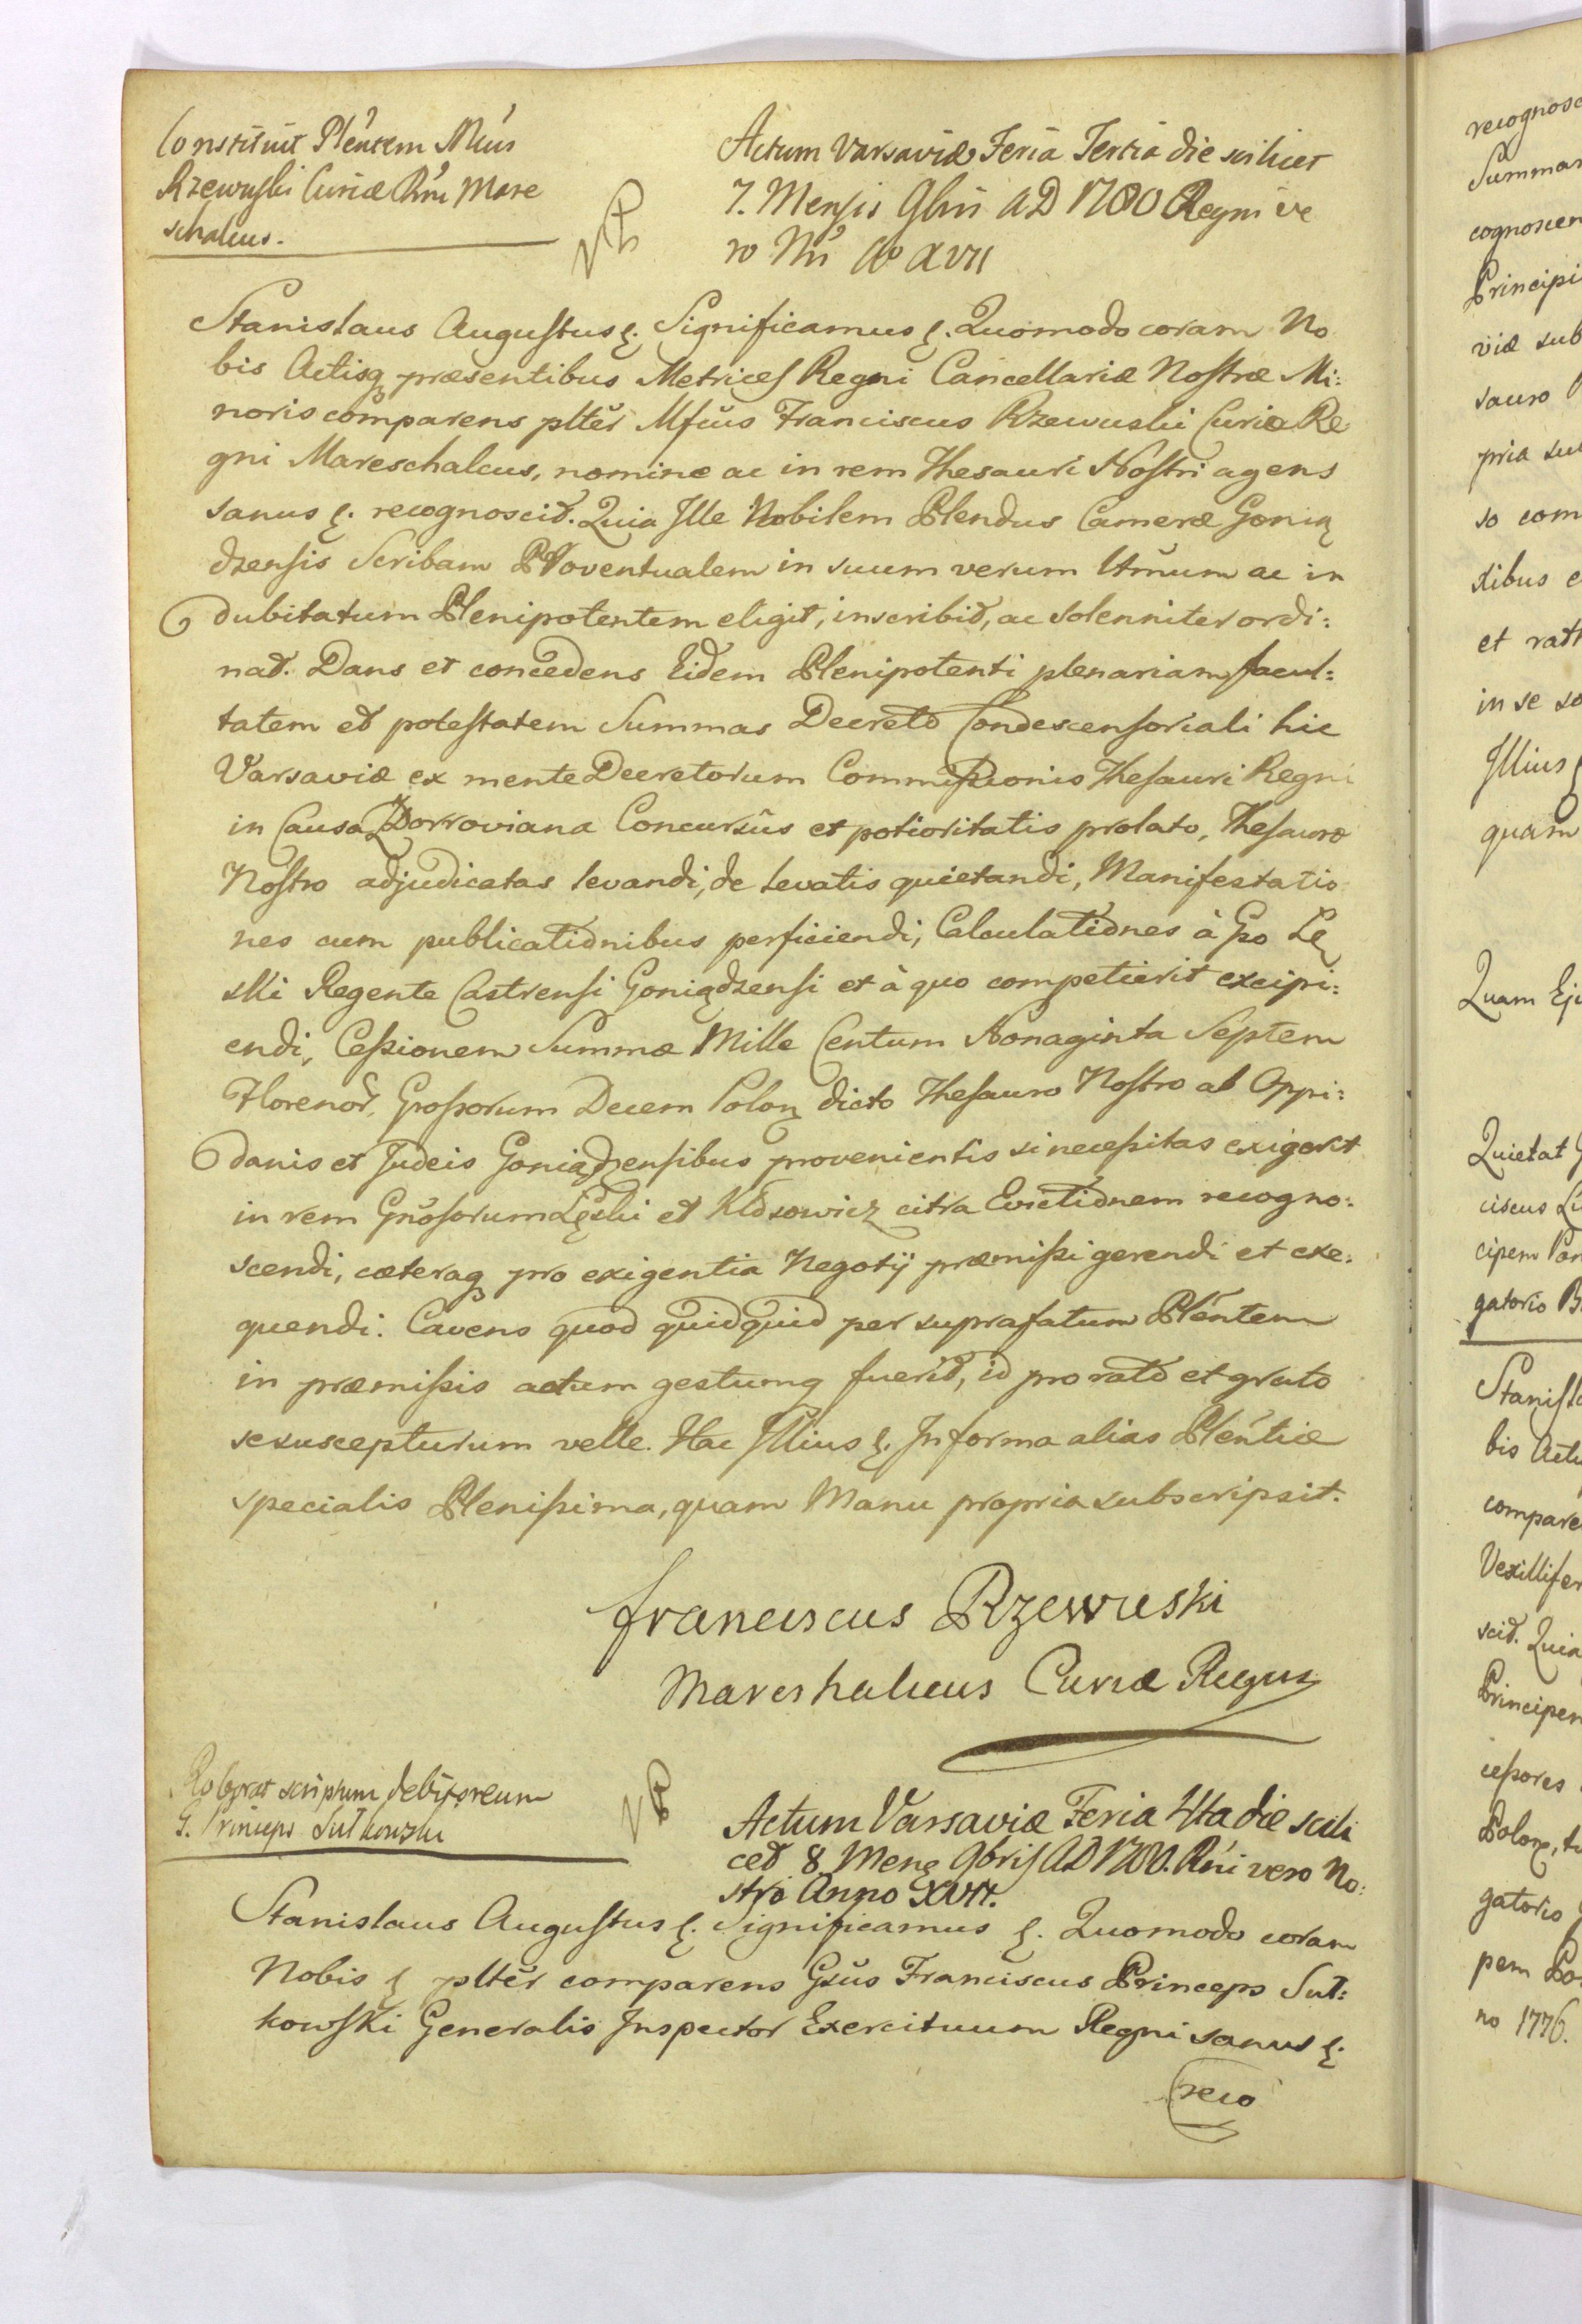 Constituit Plentem Mcus
Rzewuski Curiæ Rni Mare
schalcus.
Actum Varsaviæ Feria Tertia die scilicet
7. Mensis 9bris AD 1780 Regni ve
ro Nri Ao XVII
Stanislaus Augustus &. Significamus &. Quomodo coram No
bis Actisq præsentibus Metrices Regni Cancellariæ Nostræ Mi:
noris comparens plter Mfcus Franciscus Rzewuski Curiæ Re
gni Mareschalcus, nomine ac in rem Thesauri Nostri agens
sanus &. recognoscit. Quia Ille Nobilem Blendus Cameræ Gonią
dzensis Scribam Proventualem in suum verum Utmum ac in
dubitatum Plenipotentem eligit, inscribit, ac solenniter ordi:
nat. Dans et concedens Eidem Plenipotenti plenariam facul:
tatem et potestatem Summas Decreto Condescensoriali hic
Varsaviæ ex mente Decretorum Commissionis Thesauri Regni
in Causa Dorroviana Concursus et potioritatis prolato, Thesauro
Nostro adjudicatas levandi, de levatis quietandi, Manifestatio
nes cum publicationibus perficiendi, Calculationes à Gso Łę
ski Regente Castrensi Goniądzensi et à quo competierit excipi:
endi, Cessionem Summæ Mille Centum Nonaginta Septem
Florenor, Grossorum Decem Polon dicto Thesauro Nostro ab Oppi:
danis et Judeis Goniądzensibus provenientis si necessitas exigerit
in rem Gnosorum Łęski et Kłosowicz citra Evictionem recogno:
scendi, cæteraq pro exigentia Negotij præmissi gerendi et exe:
quendi. Cavens quod quidquid per suprafatum Plentem
in præmissis actum gestumq fuerit, id pro rato et grato
se suscepturum velle. Hac Illius &. In forma alias Plentiæ
specialis Plenissima, quam Manu propria subscripsit.
Franciscus Rzewuski
Mareshalcus Curiæ Regni
Roborat scriptum debitoreum
G. Princeps Sułkowski
Actum Varsaviæ Feria 4ta die scili
cet 8 Mens 9bris AD 1780. Rni vero No:
stri Anno XVII.
Stanislaus Augustus &. Significamus &. Quomodo coram
Nobis & plter comparens Gsus Franciscus Princeps Suł:
kowski Generalis Inspector Exercituum Regni sanus &.
reco
recognosc
Summar
cognoscen
Principi
viæ sub
sauro
pria su
so com
xibus e
et rat
in se so
Illius &
quam
Quam Ej
Quietat G
ciscus
cipem Pon
gatorio
Stanisl
bis Acti
compare
Vexillifer
scit. Quia
Principem
cessores
Polon, t
gatorio
pem Po
no 1776.